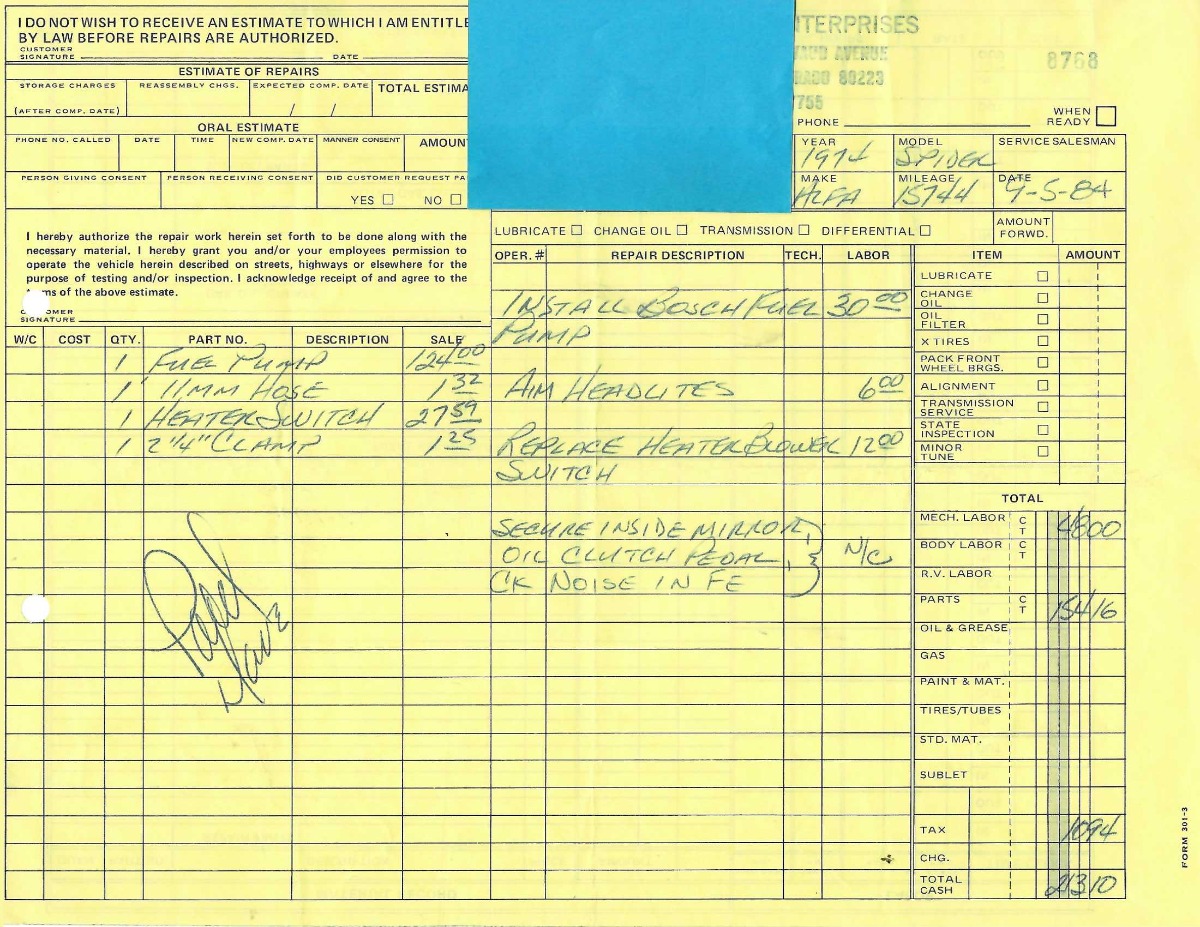 I DO NOT WISH TO RECEIVE AN ESTIMATE TO WHICH I AM ENTITLE
BY LAW BEFORE REPAIRS ARE AUTHORIZED.
CUSTOMER
SIGNATURE DATE
ESTIMATE OF REPAIRS
STORAGE CHARGES REASSEMBLY CHGS. EXPECTED COMP. DATE TOTAL ESTIMA
(AFTER COMP. DATE) / /
ORAL ESTIMATE
PHONE NO. CALLED DATE TIME NEW COMP. DATE MANNER CONSENT AMOUN
PERSON GIVING CONSENT PERSON RECEIVING CONSENT DID CUSTOMER REQUEST PA
YES NO
I hereby authorize the repair work herein set forth to be done along with the
necessary material. I hereby grant you and/or your employees permission to
operate the vehicle herein described on streets, highways or elsewhere for the
purpose of testing and/or inspection. I acknowledge receipt of and agree to the
ms of the above estimate.
OMER
SIGNATURE
NTERPRISES
AVENUE
RADO 80223
8768
7755
PHONE
WHEN
READY
YEAR MODEL SERVICE SALESMAN
1974 SPIDER
MAKE MILEAGE DATE
ALFA 15744 9-5-84
LUBRICATE CHANGE OIL TRANSMISSION DIFFERENTIAL AMOUNT
FORWD.
OPER. # REPAIR DESCRIPTION TECH. LABOR
INSTALL BOSCH FUEL 30 00
PUMP
AIM HEADLITES 6 00
REPLACE HEATER BLOWER 12 00
SWITCH
SECURE INSIDE MIRROR,
OIL CLUTCH PEDAL, N/C
CK NOISE IN FE
W/C COST QTY. PART NO. DESCRIPTION SALE
1 FUEL PUMP 124 00
1 11MM HOSE 1 32
1 HEATER SWITCH 27 59
1 2 1/4" CLAMP 1 25
ITEM AMOUNT
LUBRICATE
CHANGE
OIL
OIL
FILTER
X TIRES
PACK FRONT
WHEEL BRGS.
ALIGNMENT
TRANSMISSION
SERVICE
STATE
INSPECTION
MINOR
TUNE
TOTAL
MECH. LABOR C T 48 00
BODY LABOR C T
R.V. LABOR
PARTS C T 154 16
OIL & GREASE
GAS
PAINT & MAT.
TIRES/TUBES
STD. MAT.
SUBLET
TAX 10 94
CHG.
TOTAL
CASH 213 10
FORM 301-3